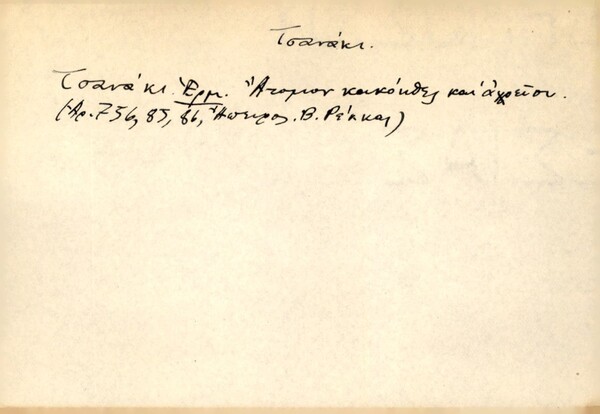 Τσανάκι.
Τσανάκι. Ἑρμ. Ἄτομον κακόηθες καί ἀχρεῖον.
(Ἀρ. 756, 85, 86, Ἤπειρος. Β. Ρέπκας)